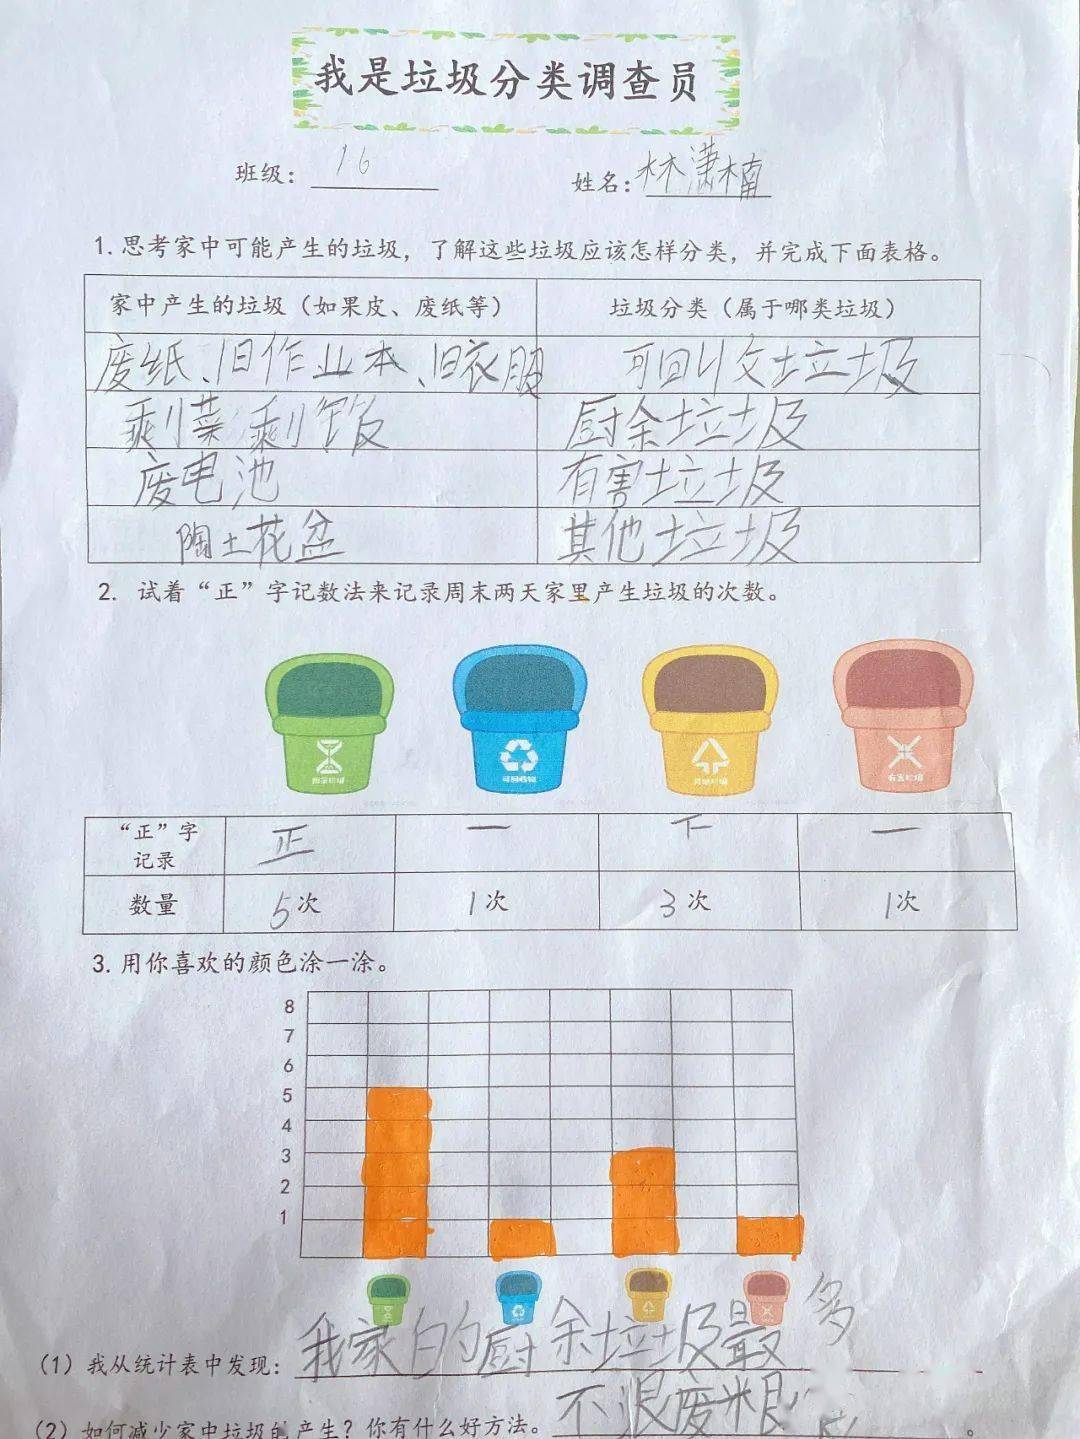 我是垃圾分类调查员
班级： 16 姓名：林潇楠
1. 思考家中可能产生的垃圾，了解这些垃圾应该怎样分类，并完成下面表格。
家中产生的垃圾（如果皮、废纸等） 垃圾分类（属于哪类垃圾）
废纸、旧作业本、旧衣服 可回收垃圾
剩菜剩饭 厨余垃圾
废电池 有害垃圾
陶土花盆 其他垃圾
2. 试着“正”字记数法来记录周末两天家里产生垃圾的次数。
厨余垃圾 可回收物 其他垃圾 有害垃圾
“正”字 正 一 下 一
记录
数量 5次 1次 3次 1次
3. 用你喜欢的颜色涂一涂。
8
7
6
5
4
3
2
1
（1）我从统计表中发现：我家的厨余垃圾最多
（2）如何减少家中垃圾的产生？你有什么好方法。不浪废粮 。